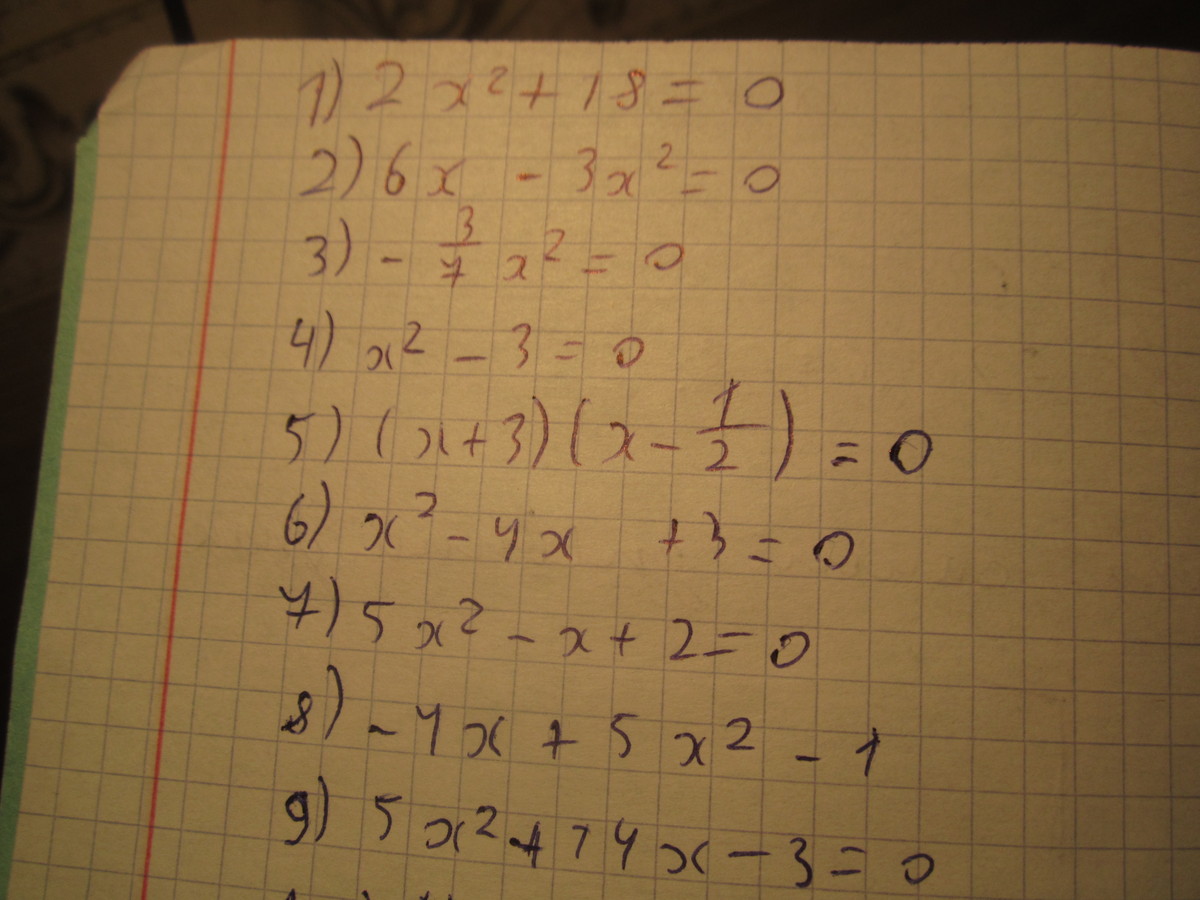 1) 2x² + 18 = 0
2) 6x - 3x² = 0
3) - 3/7 x² = 0
4) x² - 3 = 0
5) (x + 3)(x - 1/2) = 0
6) x² - 4x + 3 = 0
7) 5x² - x + 2 = 0
8) - 4x + 5x² - 1
9) 5x² + 14x - 3 = 0